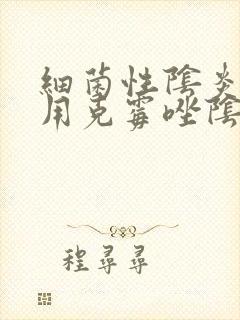 細菌性陰炎
用克霉唑陰
程尋尋